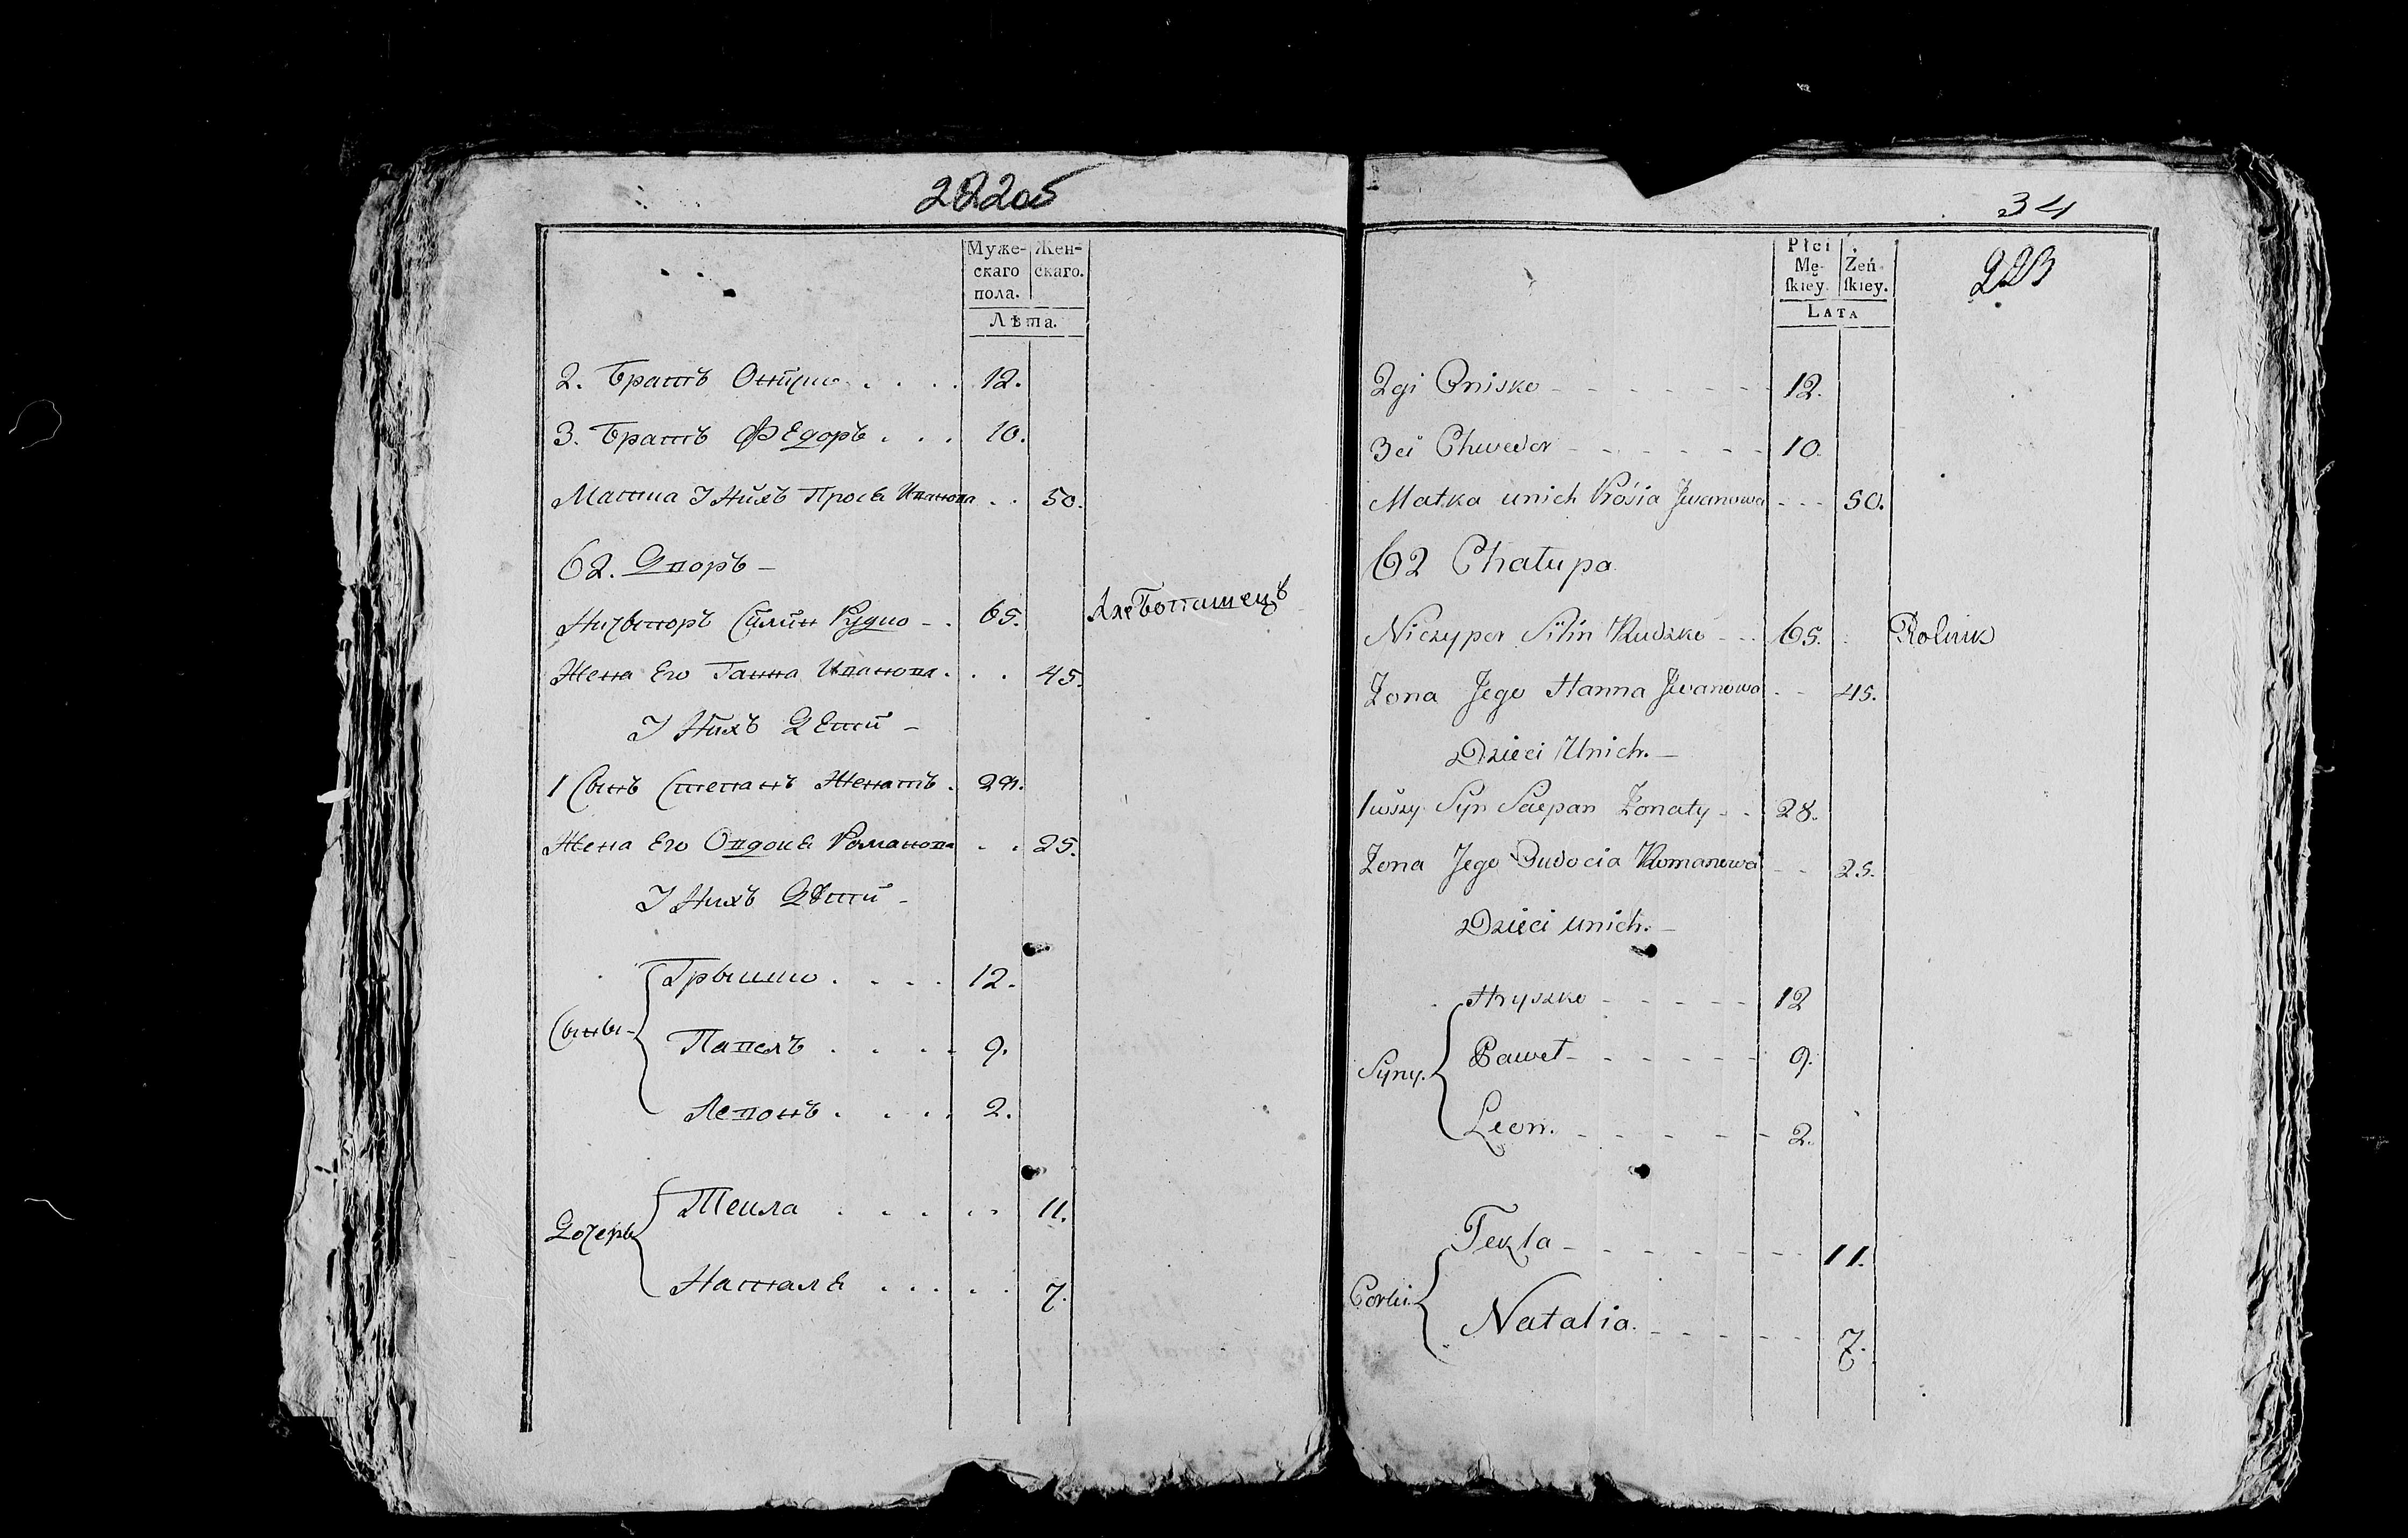 222об
Муже-
скаго
пола.
Жен-
скаго.
Лѣта.
2. Братъ Онiско . . . . 12.
3. Братъ Федоръ . . . 10.
Матка У Нихъ Прося Иванова . . 50.
62. Дворъ –
Ничыпоръ Силин Рудко – . 65. Хлебопашецъ
Жена Его Ганна Иванова . . . 45.
У Нихъ Дети –
1 Сынъ Степанъ Женатъ . 28.
Жена Его Овдоця Романова . . 25.
У Нихъ Дети –
Сыны –
Грышко . . . . 12.
Павелъ . . . . 9.
Левонъ . . . . 2.
Дочеры
Текла . . . . . 11.
Наталя . . . . . 7.
34
223
Płci
Mę-
ſkiey.
Żeń-
ſkiey.
LATA
2gi Onisko – – – – – – – 12.
3ci Chwedor – – – – – – 10.
Matka unich Prósia Jwanowa – – – 50.
62 Chałupa
Niczypor Silin Rudzko – – . 65. Rolnik
Zona Jego Hanna Jwanowa . – 45.
Dzieci Unich. –
1wszy Syn Sciepan Zonaty – . 28.
Zona Jego Oudocia Romanowa – – 25.
Dzieci unich. –
Syny.
Hryszko – – – – – 12
Paweł – – – – – – 9.
Leon. – – – – – – 2.
Corki.
Tekla – – – – – – – – 11.
Natalia. – – – – – – 7.